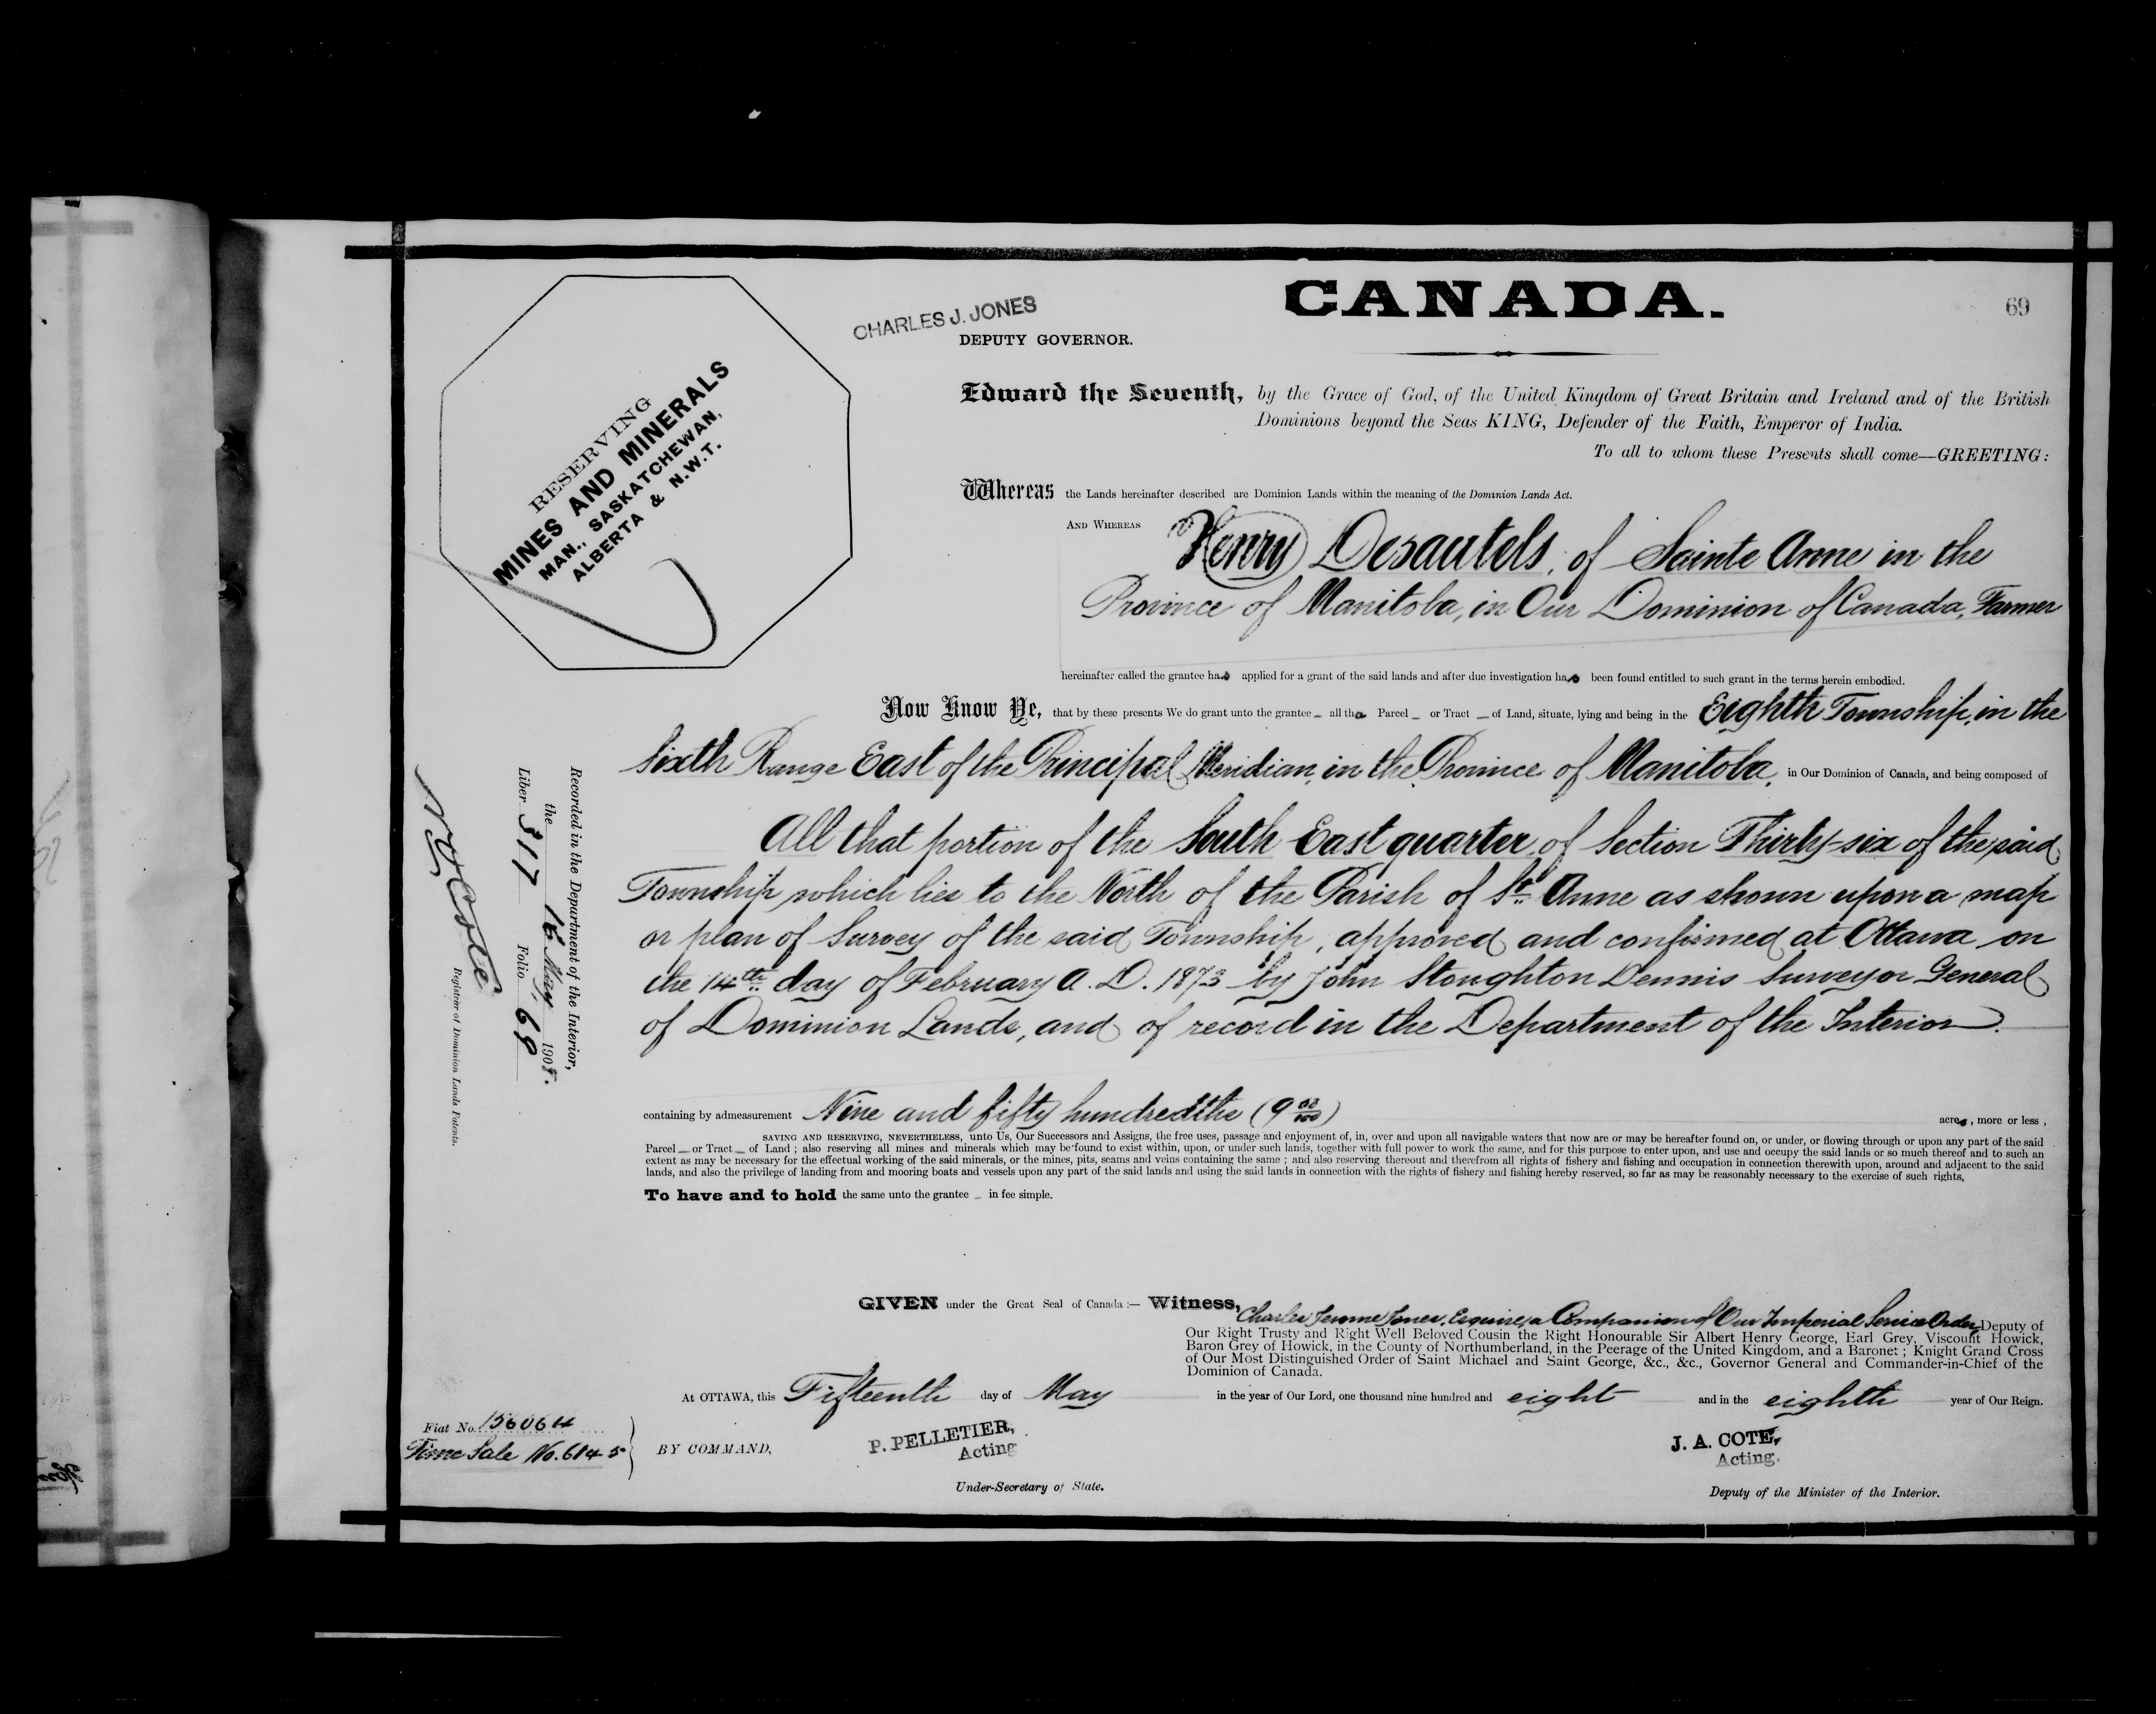 CANADA.
69
CHARLES J. JONES
DEPUTY GOVERNOR.
RESERVING
MINES AND MINERALS
MAN., SASKATCHEWAN,
ALBERTA & N.W.T.
Edward the Seventh, by the Grace of God, of the United Kingdom of Great Britain and Ireland and of the British
Dominions beyond the Seas KING, Defender of the Faith, Emperor of India.
To all to whom these Presents shall come—GREETING:
Whereas the Lands hereinafter described are Dominion Lands within the meaning of the Dominion Lands Act.
AND WHEREAS Henry Desautels, of Sainte Anne in the
Province of Manitoba, in Our Dominion of Canada, Farmer
hereinafter called the grantee has applied for a grant of the said lands and after due investigation has been found entitled to such grant in the terms herein embodied.
Now Know Ye, that by these presents We do grant unto the grantee all that Parcel or Tract of Land, situate, lying and being in the Eighth Township, in the
Sixth Range East of the Principal Meridian, in the Province of Manitoba, in Our Dominion of Canada, and being composed of
All that portion of the South East quarter of Section Thirty-six of the said
Township which lies to the North of the Parish of St. Anne as shown upon a map
or plan of Survey of the said Township, approved and confirmed at Ottawa on
the 14th day of February A.D. 1873 by John Stoughton Dennis Surveyor General
of Dominion Lands, and of record in the Department of the Interior.
containing by admeasurement Nine and fifty hundredths (9 50/100) acres, more or less,
SAVING AND RESERVING, NEVERTHELESS, unto Us, Our Successors and Assigns, the free uses, passage and enjoyment of, in, over and upon all navigable waters that now are or may be hereafter found on, or under, or flowing through or upon any part of the said
Parcel or Tract of Land; also reserving all mines and minerals which may be found to exist within, upon, or under such lands, together with full power to work the same, and for this purpose to enter upon, and use and occupy the said lands or so much thereof and to such an
extent as may be necessary for the effectual working of the said minerals, or the mines, pits, seams and veins containing the same; and also reserving thereout and therefrom all rights of fishery and fishing and occupation in connection therewith upon, around and adjacent to the said
lands, and also the privilege of landing from and mooring boats and vessels upon any part of the said lands and using the said lands in connection with the rights of fishery and fishing hereby reserved, so far as may be reasonably necessary to the exercise of such rights,
To have and to hold the same unto the grantee in fee simple.
GIVEN under the Great Seal of Canada:— Witness, Charles Jerome Jones, Esquire, a Companion of Our Imperial Service Order, Deputy of
Our Right Trusty and Right Well Beloved Cousin the Right Honourable Sir Albert Henry George, Earl Grey, Viscount Howick,
Baron Grey of Howick, in the County of Northumberland, in the Peerage of the United Kingdom, and a Baronet; Knight Grand Cross
of Our Most Distinguished Order of Saint Michael and Saint George, &c., &c., Governor General and Commander-in-Chief of the
Dominion of Canada.
At OTTAWA, this Fifteenth day of May in the year of Our Lord, one thousand nine hundred and eight and in the eighth year of Our Reign.
Fiat No. 156064
Time Sale No. 6145
BY COMMAND,
P. PELLETIER,
Acting
Under-Secretary of State.
J. A. COTE,
Acting.
Deputy of the Minister of the Interior.
Recorded in the Department of the Interior,
the 16 May, 1908.
Liber 317 Folio 69
N O Coté
Registrar of Dominion Lands Patents.